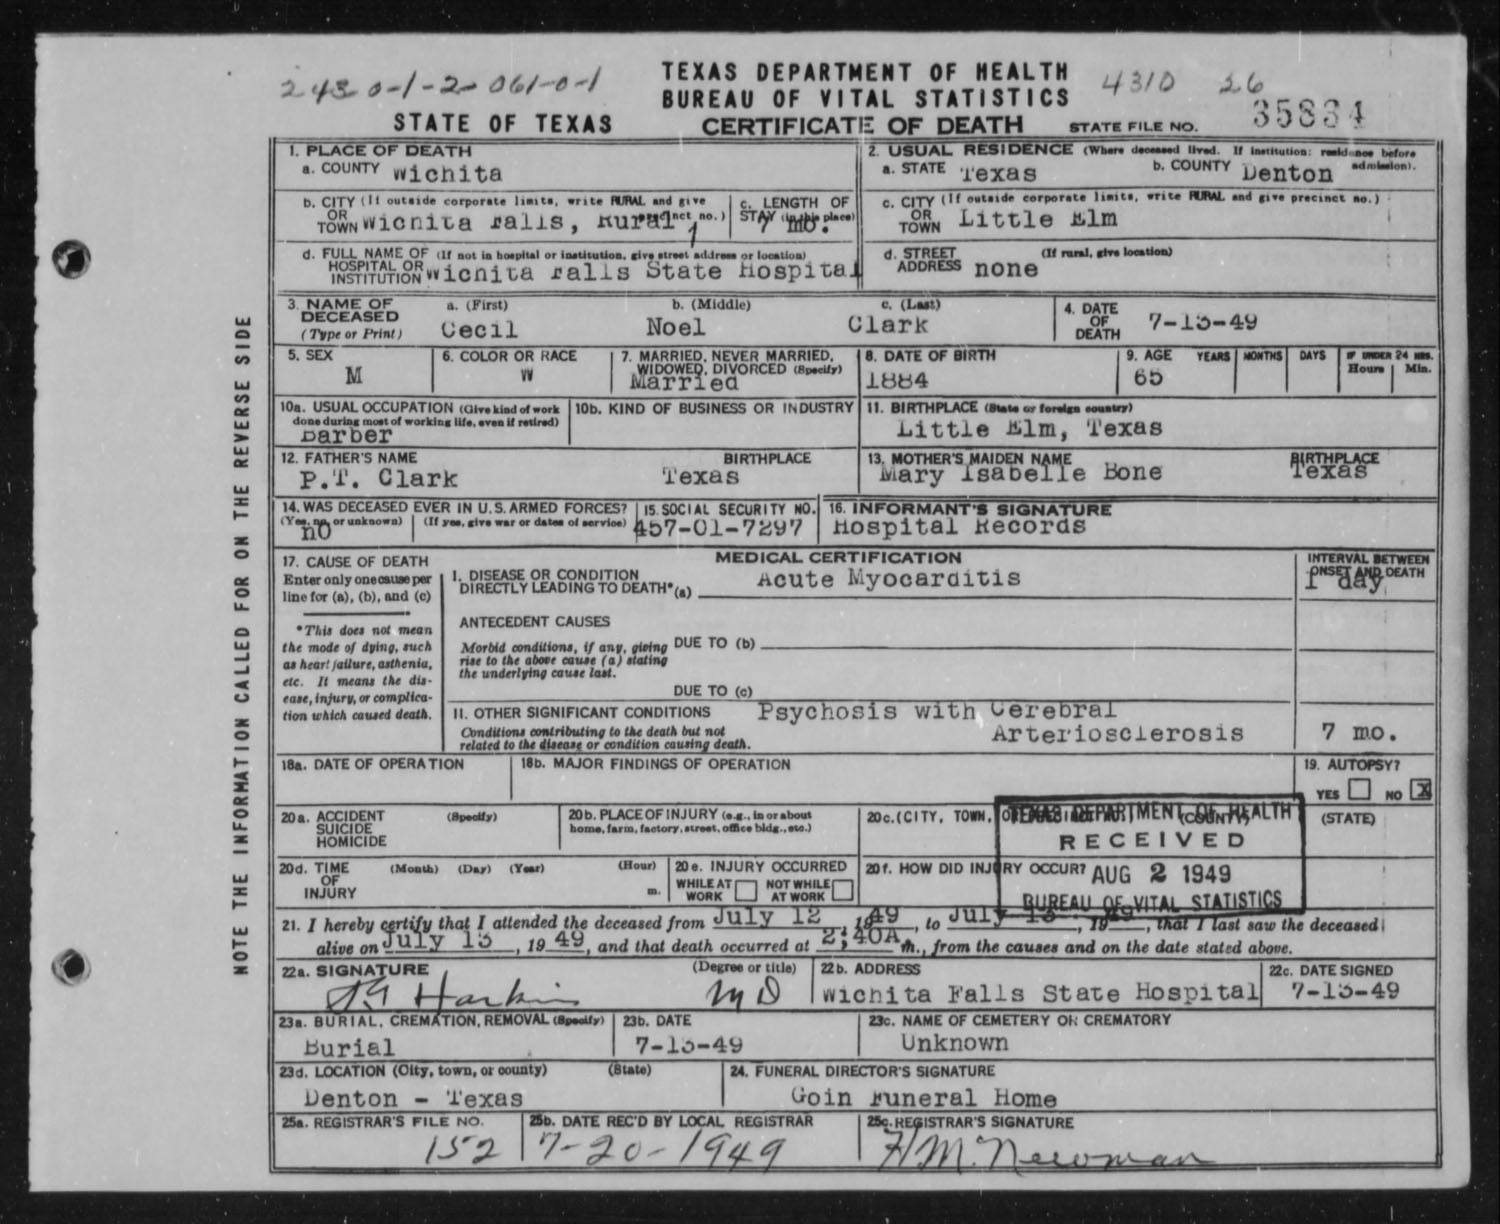 2430-1-2-061-0-1
TEXAS DEPARTMENT OF HEALTH
4310 26
BUREAU OF VITAL STATISTICS
STATE OF TEXAS CERTIFICATE OF DEATH STATE FILE NO. 35834
1. PLACE OF DEATH
a. COUNTY Wichita
2. USUAL RESIDENCE (Where deceased lived. If institution: residence before admission).
a. STATE Texas b. COUNTY Denton
b. CITY (If outside corporate limits, write RURAL and give precinct no.)
OR
TOWN Wichita Falls, Rural, 1
c. LENGTH OF
STAY (in this place)
7 mo.
c. CITY (If outside corporate limits, write RURAL and give precinct no.)
OR
TOWN Little Elm
d. FULL NAME OF (If not in hospital or institution, give street address or location)
HOSPITAL OR
INSTITUTION Wichita Falls State Hospital
d. STREET (If rural, give location)
ADDRESS none
3. NAME OF DECEASED
(Type or Print)
a. (First) b. (Middle) c. (Last)
Cecil Noel Clark
4. DATE OF DEATH 7-13-49
5. SEX
M
6. COLOR OR RACE
W
7. MARRIED, NEVER MARRIED, WIDOWED, DIVORCED (Specify)
Married
8. DATE OF BIRTH
1884
9. AGE YEARS MONTHS DAYS IF UNDER 24 HRS. Hours Min.
65
10a. USUAL OCCUPATION (Give kind of work
done during most of working life, even if retired)
Barber
10b. KIND OF BUSINESS OR INDUSTRY
11. BIRTHPLACE (State or foreign country)
Little Elm, Texas
12. FATHER'S NAME BIRTHPLACE
P.T. Clark Texas
13. MOTHER'S MAIDEN NAME BIRTHPLACE
Mary Isabelle Bone Texas
14. WAS DECEASED EVER IN U.S. ARMED FORCES?
(Yes, no, or unknown) (If yes, give war or dates of service)
no
15. SOCIAL SECURITY NO.
457-01-7297
16. INFORMANT'S SIGNATURE
Hospital Records
17. CAUSE OF DEATH
Enter only one cause per
line for (a), (b), and (c)
*This does not mean
the mode of dying, such
as heart failure, asthenia,
etc. It means the dis-
ease, injury, or complica-
tion which caused death.
MEDICAL CERTIFICATION
INTERVAL BETWEEN
ONSET AND DEATH
I. DISEASE OR CONDITION
DIRECTLY LEADING TO DEATH*(a) Acute Myocarditis
1 day
ANTECEDENT CAUSES
Morbid conditions, if any, giving
rise to the above cause (a) stating
the underlying cause last.
DUE TO (b)
DUE TO (c)
II. OTHER SIGNIFICANT CONDITIONS
Conditions contributing to the death but not
related to the disease or condition causing death.
Psychosis with Cerebral
Arteriosclerosis
7 mo.
18a. DATE OF OPERATION
18b. MAJOR FINDINGS OF OPERATION
19. AUTOPSY?
YES NO X
20a. ACCIDENT (Specify)
SUICIDE
HOMICIDE
20b. PLACE OF INJURY (e.g., in or about
home, farm, factory, street, office bldg., etc.)
20c. (CITY, TOWN, (COUNTY) (STATE)
TEXAS DEPARTMENT OF HEALTH
RECEIVED
AUG 2 1949
BUREAU OF VITAL STATISTICS
20d. TIME (Month) (Day) (Year) (Hour)
OF
INJURY m.
20e. INJURY OCCURRED
WHILE AT WORK NOT WHILE AT WORK
20f. HOW DID INJURY OCCUR?
21. I hereby certify that I attended the deceased from July 12, 1949, to July 13, 1949, that I last saw the deceased
alive on July 13, 1949, and that death occurred at 2;40A m., from the causes and on the date stated above.
22a. SIGNATURE (Degree or title)
Harkins MD
22b. ADDRESS
Wichita Falls State Hospital
22c. DATE SIGNED
7-13-49
23a. BURIAL, CREMATION, REMOVAL (Specify)
Burial
23b. DATE
7-13-49
23c. NAME OF CEMETERY OR CREMATORY
Unknown
23d. LOCATION (City, town, or county) (State)
Denton - Texas
24. FUNERAL DIRECTOR'S SIGNATURE
Goin Funeral Home
25a. REGISTRAR'S FILE NO.
152
25b. DATE REC'D BY LOCAL REGISTRAR
7-20-1949
25c. REGISTRAR'S SIGNATURE
H M. Newman
NOTE THE INFORMATION CALLED FOR ON THE REVERSE SIDE